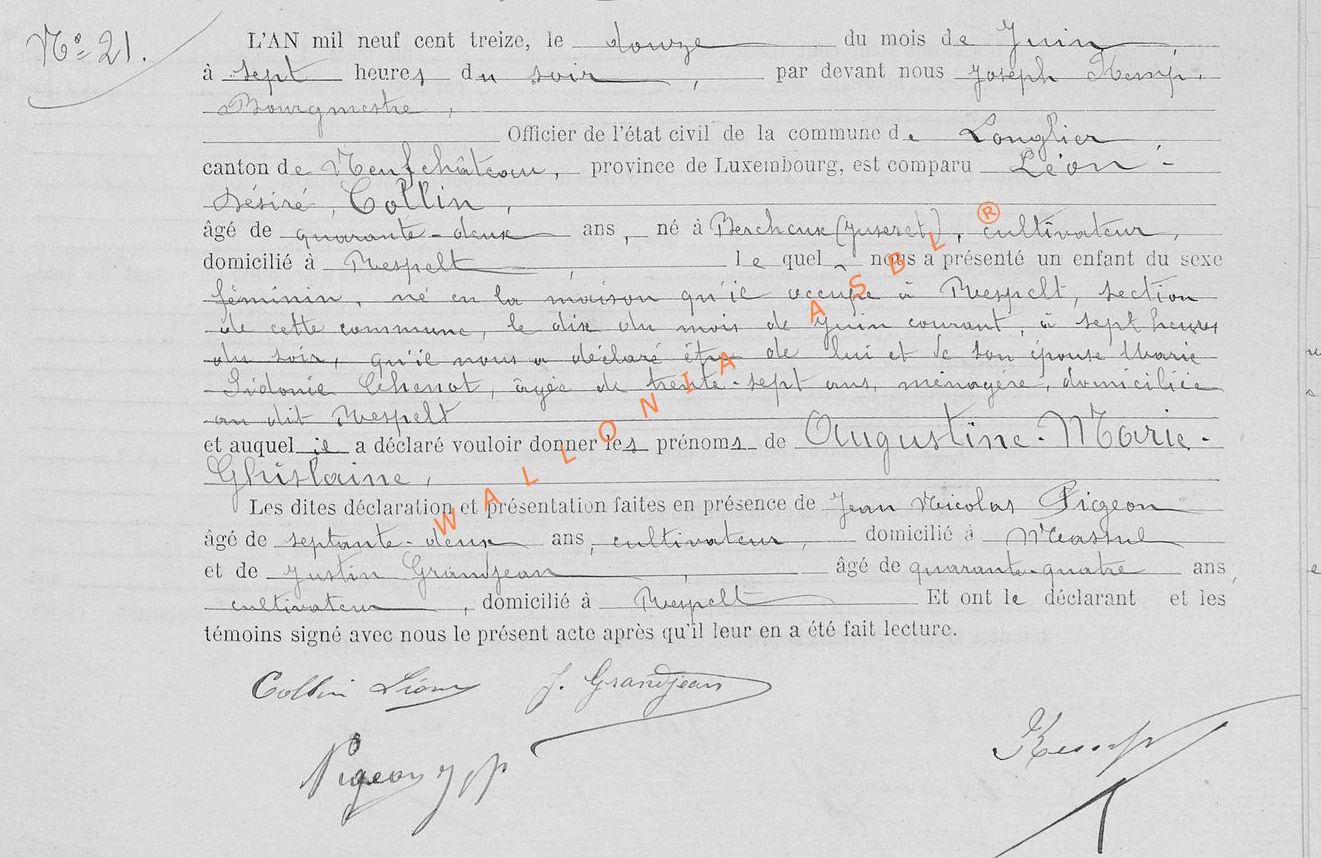 N° 21.
L'AN mil neuf cent treize, le douze du mois de Juin,
à sept heures du soir, par devant nous Joseph Kemp,
Bourgmestre,
Officier de l'état civil de la commune de Longlier,
canton de Neufchâteau, province de Luxembourg, est comparu Léon-
Désiré, Collin,
âgé de quarante-deux ans, né à Bercheux (Juseret), cultivateur,
domicilié à Respelt, le quel nous a présenté un enfant du sexe
féminin, né en la maison qu'il occupe à Respelt, section
de cette commune, le dix du mois de Juin courant, à sept heures
du soir, qu'il nous a déclaré être de lui et de son épouse Marie
Sidonie Chenot, âgée de trente-sept ans, ménagère, domiciliée
au dit Respelt
et auquel il a déclaré vouloir donner les prénoms de Augustine-Marie-
Ghislaine,
Les dites déclaration et présentation faites en présence de Jean Nicolas Pigeon
âgé de septante-deux ans, cultivateur, domicilié à Massul
et de Justin Grandjean, âgé de quarante-quatre ans,
cultivateur, domicilié à Respelt Et ont le déclarant et les
témoins signé avec nous le présent acte après qu'il leur en a été fait lecture.
Collin Léon J. Grandjean
Pigeon Kemp
WALLONIA ASBL ®